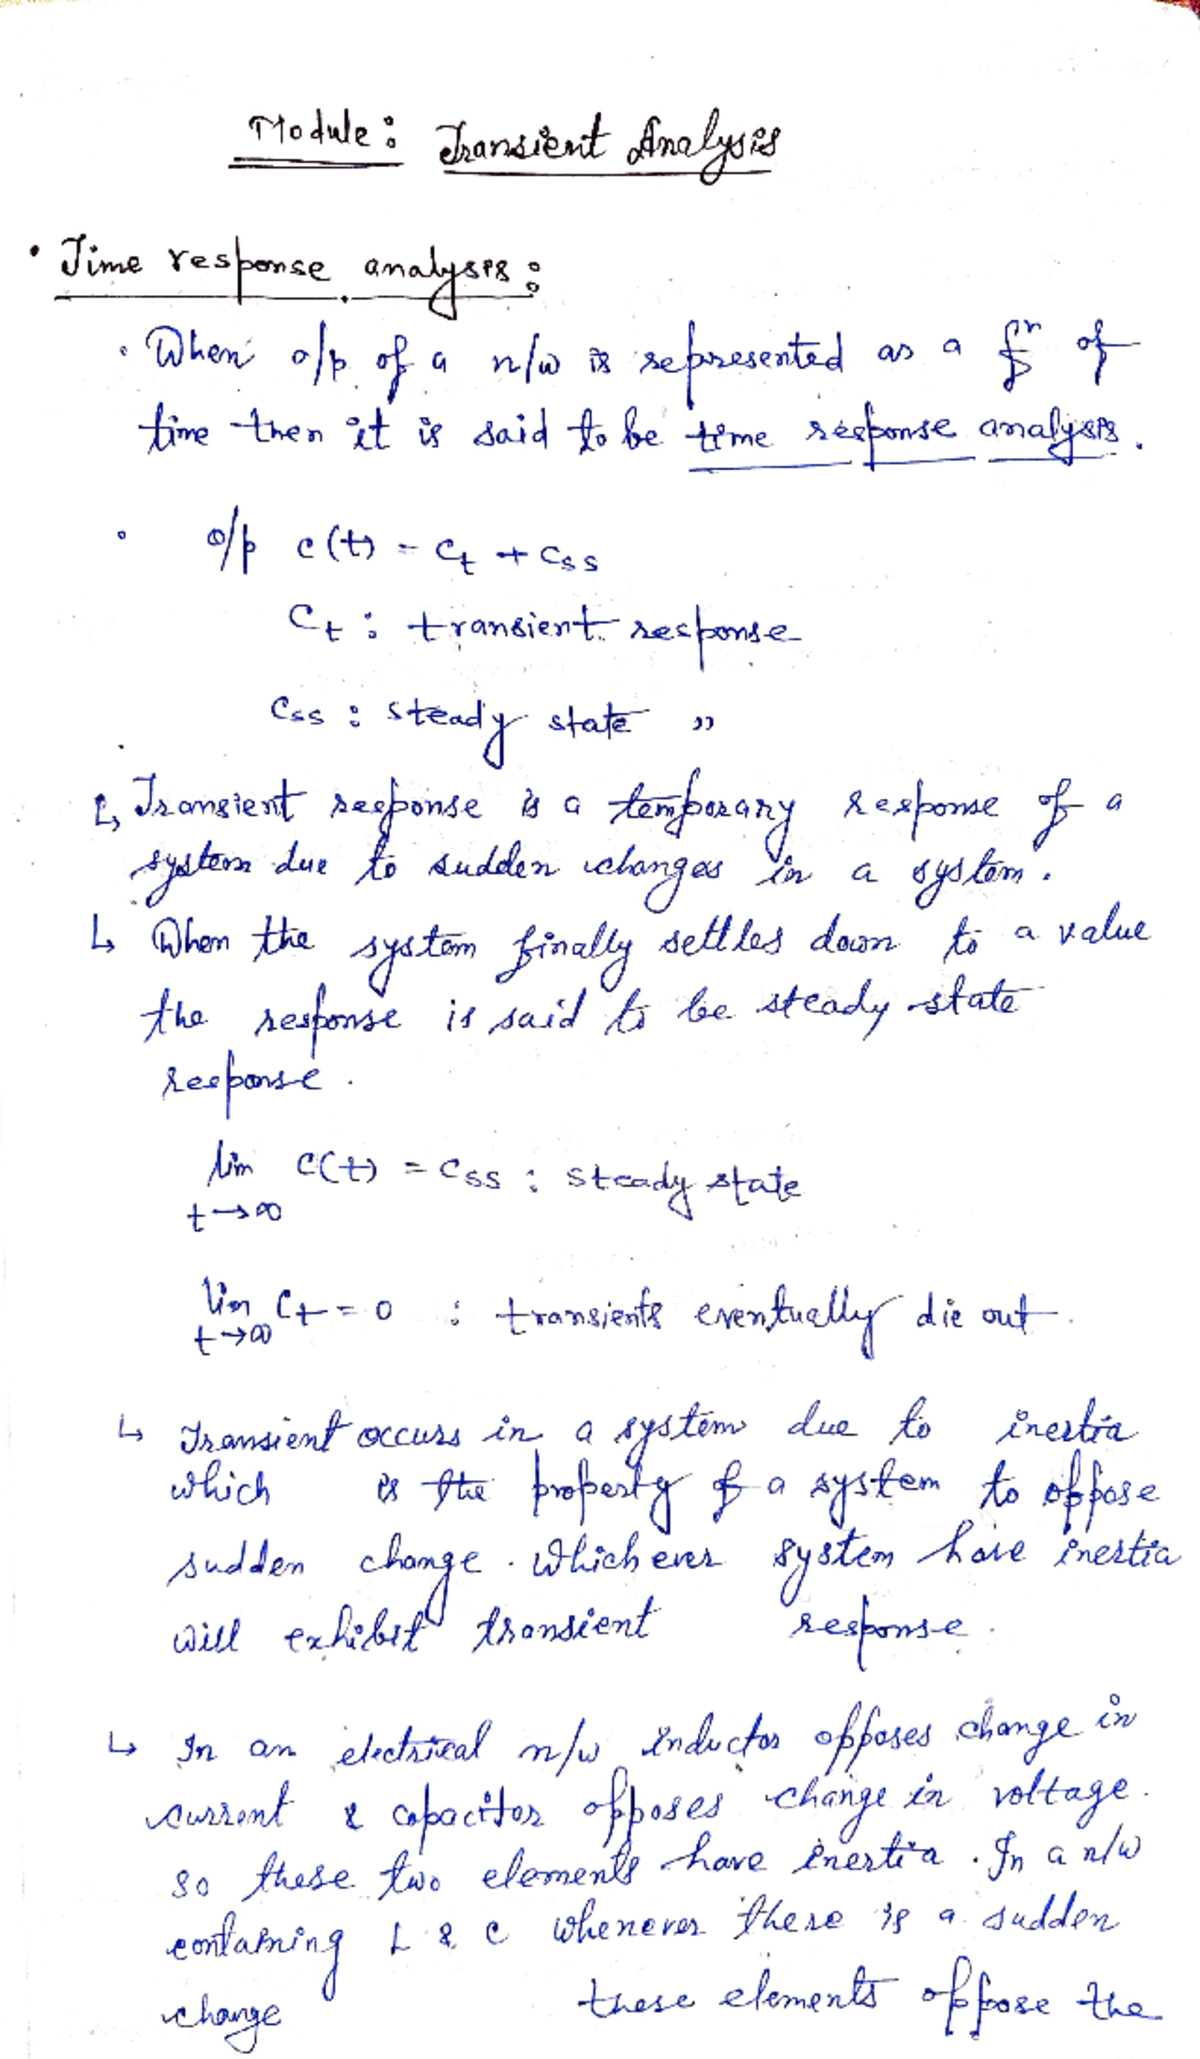 Module: Transient Analysis
• Time response analysis:
• When o/p of a n/w is represented as a fⁿ of
time then it is said to be time response analysis.
• o/p c(t) = Ct + Css
Ct : transient response
Css : steady state ”
↳ Transient response is a temporary response of a
system due to sudden changes in a system.
↳ When the system finally settles down to a value
the response is said to be steady state
response.
lim c(t) = Css : steady state
t→∞
lim Ct = 0 : transients eventually die out.
t→∞
↳ Transient occurs in a system due to inertia
which is the property of a system to oppose
sudden change. Whichever system have inertia
will exhibit transient response.
↳ In an electrical n/w inductor opposes change in
current & capacitor opposes change in voltage.
so these two elements have inertia. In a n/w
containing L & C whenever there is a sudden
change these elements oppose the